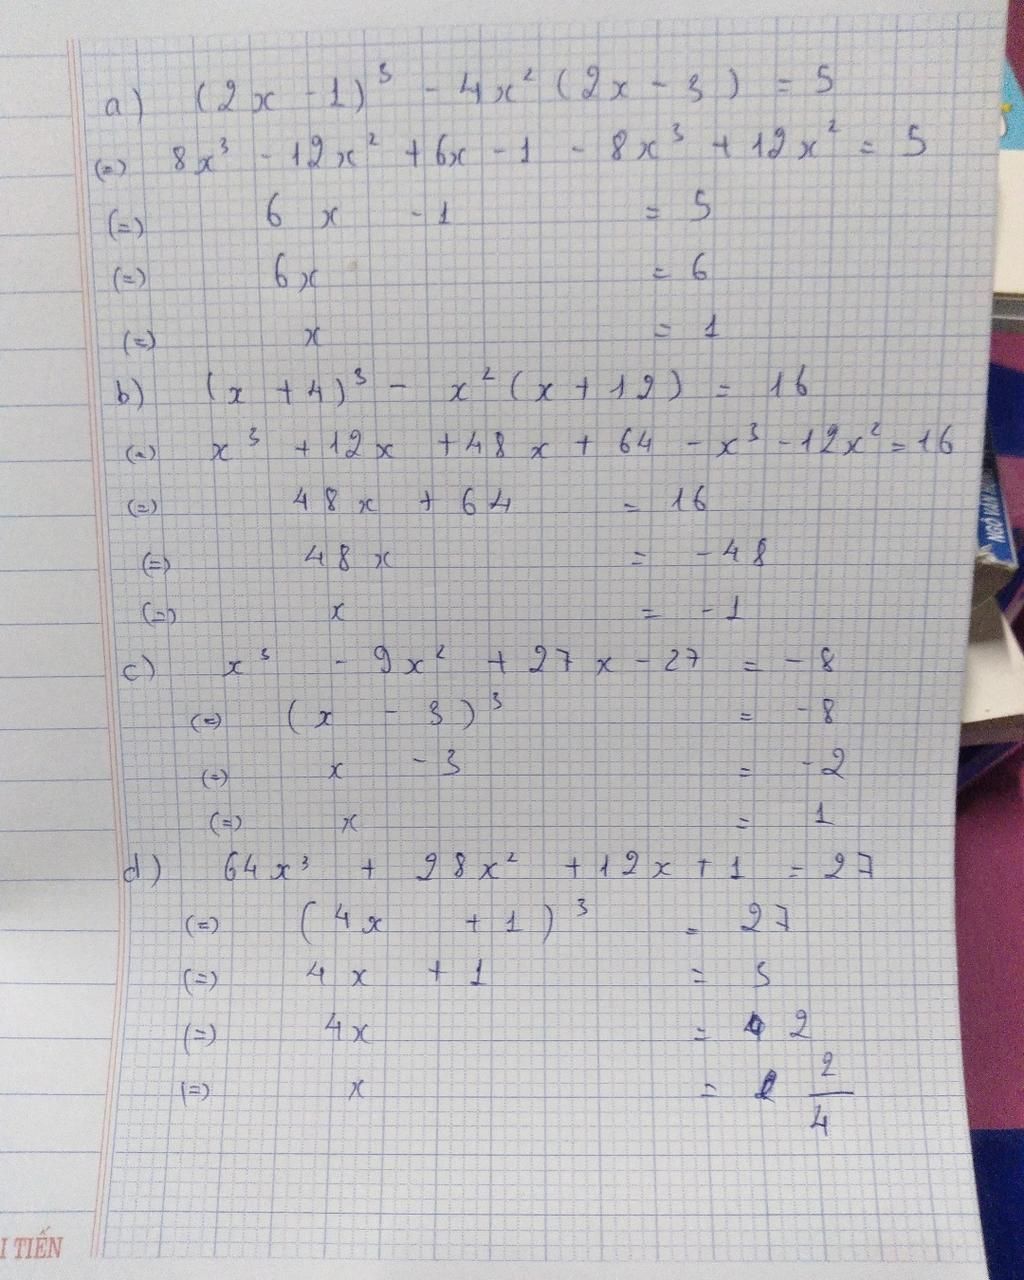 a) (2x - 1)³ - 4x² (2x - 3) = 5
(=) 8x³ - 12x² + 6x - 1 - 8x³ + 12x² = 5
(=) 6x - 1 = 5
(=) 6x = 6
(=) x = 1
b) (x + 4)³ - x² (x + 12) = 16
(=) x³ + 12x + 48x + 64 - x³ - 12x² = 16
(=) 48x + 64 = 16
(=) 48x = -48
(=) x = -1
c) x³ - 9x² + 27x - 27 = -8
(=) (x - 3)³ = -8
(=) x - 3 = -2
(=) x = 1
d) 64x³ + 28x² + 12x + 1 = 27
(=) (4x + 1)³ = 27
(=) 4x + 1 = 3
(=) 4x = 2
(=) x = 2/4
I TIẾN
NGÔ VĂN